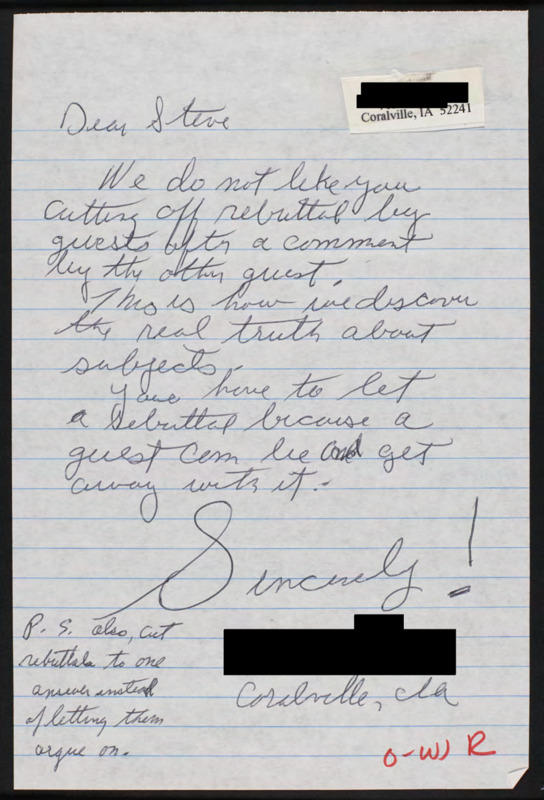 Coralville, IA 52241
Dear Steve
We do not like you
cutting off rebuttal by
guests after a comment
by the other guest.
This is how we discover
the real truth about
subjects.
You have to let
a rebuttal because a
guest can lie and get
away with it.
Sincerely!
P.S. also, cut
rebuttals to one
answer instead
of letting them
argue on.
Coralville, Ia
O-W) R